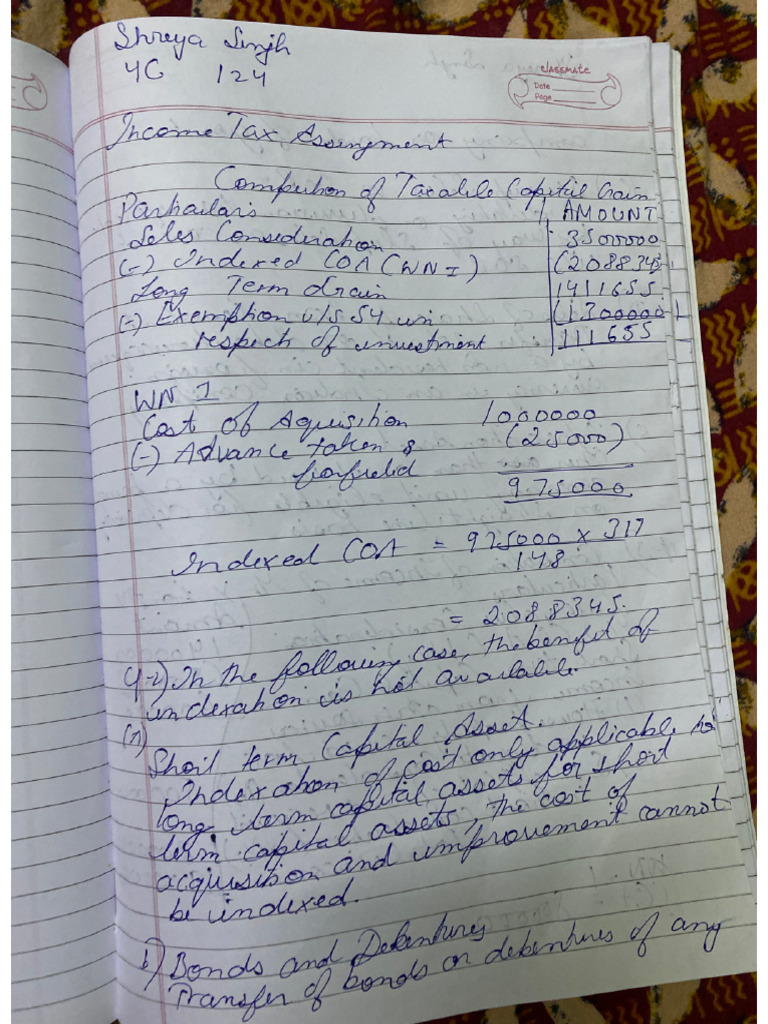 Shreya Singh
4C 124
CLASSMATE
Date
Page
Income Tax Assingement
Compution of Taxable Capital Gain
Particulars AMOUNT
Sales Consideration 3500000
(-) Indexed COA (WN I) (2088345)
Long Term Gain 1411655
(-) Exemption U/S 54 in (1300000)
respect of investment 111655
WN I
Cost of Aquisition 1000000
(-) Advance taken & (25000)
forfieted 975000
Indexed COA = 975000 x 317
148
= 2088345.
Q-2) In the following case, the benefit of
indexation is not available.
(a)
Short term Capital Asset.
Indexation of cost only applicable to
long term capital assets for short
term capital assets, the cost of
acquisition and improvement cannot
be indexed.
b) Bonds and Debentures
Transfer of bonds or debentures of any